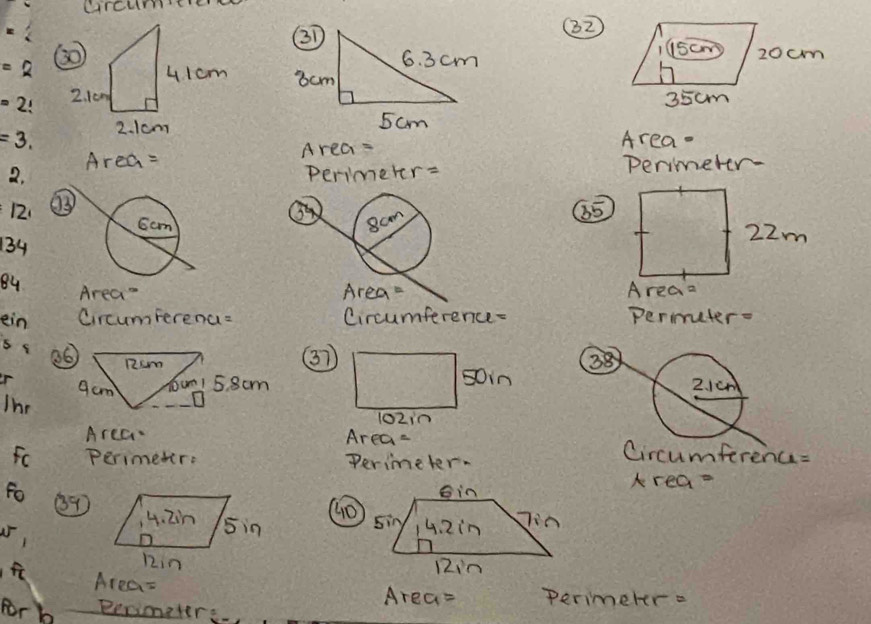 = 2
= 2!
= 3.
2.
= 12
134
84
ein
Ihr
Fc
Fo
For b
30 2.1cm 4.1cm
2.1cm
Area =
31 3cm 6.3cm
5cm
Area =
Perimeter =
32 15cm 20cm
35cm
Area =
Perimeter -
33 6cm
Area =
Circumference =
34 8cm
Area =
Circumference =
35 22m
Area =
Perimeter =
36 12cm
9cm 10cm 5.8cm
Area =
Perimeter:
37 50in
102in
Area =
Perimeter -
38 2.1cm
Circumference =
Area =
39 4.2in 5in
12in
Area =
Perimeter =
40 6in
5in 4.2in 7in
12in
Area = Perimeter =